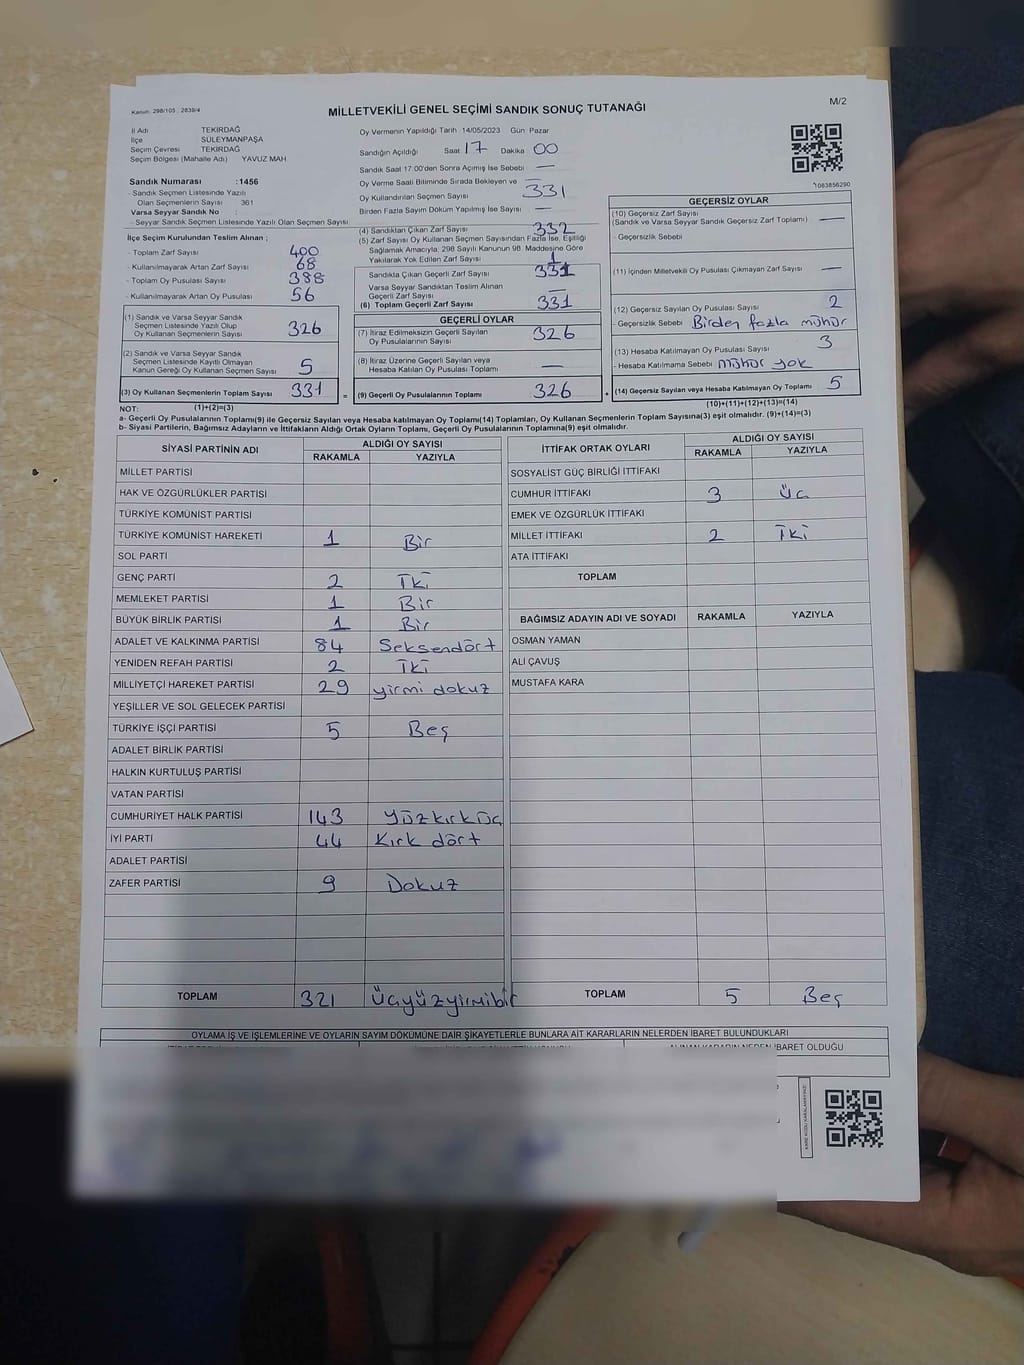 Kanun: 298/105 ; 2839/4
MİLLETVEKİLİ GENEL SEÇİMİ SANDIK SONUÇ TUTANAĞI
M/2
İl Adı TEKİRDAĞ
İlçe SÜLEYMANPAŞA
Seçim Çevresi TEKİRDAĞ
Seçim Bölgesi (Mahalle Adı) YAVUZ MAH
Sandık Numarası :1456
- Sandık Seçmen Listesinde Yazılı
Olan Seçmenlerin Sayısı 361
Varsa Seyyar Sandık No :
- Seyyar Sandık Seçmen Listesinde Yazılı Olan Seçmen Sayısı
İlçe Seçim Kurulundan Teslim Alınan ;
- Toplam Zarf Sayısı 400
- Kullanılmayarak Artan Zarf Sayısı 68
- Toplam Oy Pusulası 388
- Kullanılmayarak Artan Oy Pusulası 56
(1) Sandık ve Varsa Seyyar Sandık
Seçmen Listesinde Yazılı Olup
Oy Kullanan Seçmenlerin Sayısı 326
(2) Sandık ve Varsa Seyyar Sandık
Seçmen Listesinde Kayıtlı Olmayan
Kanun Gereği Oy Kullanan Seçmen Sayısı 5
(3) Oy Kullanan Seçmenlerin Toplam Sayısı 331
Oy Vermenin Yapıldığı Tarih 14/05/2023 Gün Pazar
Sandığın Açıldığı Saat 17 Dakika 00
Sandık Saat 17:00'den Sonra Açımış İse Sebebi —
Oy Verme Saati Bitiminde Sırada Bekleyen ve
Oy Kullandırılan Seçmen Sayısı 331
Birden Fazla Sayım Döküm Yapılmış İse Sayısı —
(4) Sandıktan Çıkan Zarf Sayısı 332
(5) Zarf Sayısı Oy Kullanan Seçmen Sayısından Fazla İse, Eşitliği
Sağlamak Amacıyla, 298 Sayılı Kanunun 98. Maddesine Göre
Yakılarak Yok Edilen Zarf Sayısı 1
Sandıkta Çıkan Geçerli Zarf Sayısı 331
Varsa Seyyar Sandıktan Teslim Alınan
Geçerli Zarf Sayısı —
(6) Toplam Geçerli Zarf Sayısı 331
GEÇERLİ OYLAR
(7) İtiraz Edilmeksizin Geçerli Sayılan
Oy Pusulalarının Sayısı 326
(8) İtiraz Üzerine Geçerli Sayılan veya
Hesaba Katılan Oy Pusulası Toplamı —
= (9) Geçerli Oy Pusulalarının Toplamı 326
1063856290
GEÇERSİZ OYLAR
(10) Geçersiz Zarf Sayısı
(Sandık ve Varsa Seyyar Sandık Geçersiz Zarf Toplamı) —
- Geçersizlik Sebebi
(11) İçinden Milletvekili Oy Pusulası Çıkmayan Zarf Sayısı —
(12) Geçersiz Sayılan Oy Pusulası Sayısı 2
- Geçersizlik Sebebi Birden fazla mühür
(13) Hesaba Katılmayan Oy Pusulası Sayısı 3
- Hesaba Katılmama Sebebi mühür yok
+ (14) Geçersiz Sayılan veya Hesaba Katılmayan Oy Toplamı 5
NOT: (1)+(2)=(3) (10)+(11)+(12)+(13)=(14)
a- Geçerli Oy Pusulalarının Toplamı(9) ile Geçersiz Sayılan veya Hesaba katılmayan Oy Toplamı(14) Toplamları, Oy Kullanan Seçmenlerin Toplam Sayısına(3) eşit olmalıdır. (9)+(14)=(3)
b- Siyasi Partilerin, Bağımsız Adayların ve İttifakların Aldığı Ortak Oyların Toplamı, Geçerli Oy Pusulalarının Toplamına(9) eşit olmalıdır.
SİYASİ PARTİNİN ADI ALDIĞI OY SAYISI
RAKAMLA YAZIYLA
MİLLET PARTİSİ
HAK VE ÖZGÜRLÜKLER PARTİSİ
TÜRKİYE KOMÜNİST PARTİSİ
TÜRKİYE KOMÜNİST HAREKETİ 1 Bir
SOL PARTİ
GENÇ PARTİ 2 İki
MEMLEKET PARTİSİ 1 Bir
BÜYÜK BİRLİK PARTİSİ 1 Bir
ADALET VE KALKINMA PARTİSİ 84 Seksendört
YENİDEN REFAH PARTİSİ 2 İki
MİLLİYETÇİ HAREKET PARTİSİ 29 yirmi dokuz
YEŞİLLER VE SOL GELECEK PARTİSİ
TÜRKİYE İŞÇİ PARTİSİ 5 Beş
ADALET BİRLİK PARTİSİ
HALKIN KURTULUŞ PARTİSİ
VATAN PARTİSİ
CUMHURİYET HALK PARTİSİ 143 yüzkırküç
İYİ PARTİ 44 Kırk dört
ADALET PARTİSİ
ZAFER PARTİSİ 9 Dokuz
TOPLAM 321 üçyüzyirmibir
İTTİFAK ORTAK OYLARI ALDIĞI OY SAYISI
RAKAMLA YAZIYLA
SOSYALİST GÜÇ BİRLİĞİ İTTİFAKI
CUMHUR İTTİFAKI 3 üç
EMEK VE ÖZGÜRLÜK İTTİFAKI
MİLLET İTTİFAKI 2 İki
ATA İTTİFAKI
TOPLAM
BAĞIMSIZ ADAYIN ADI VE SOYADI RAKAMLA YAZIYLA
OSMAN YAMAN
ALİ ÇAVUŞ
MUSTAFA KARA
TOPLAM 5 Beş
OYLAMA İŞ VE İŞLEMLERİNE VE OYLARIN SAYIM DÖKÜMÜNE DAİR ŞİKAYETLERLE BUNLARA AİT KARARLARIN NELERDEN İBARET BULUNDUKLARI
ALINAN KARARIN NEDEN İBARET OLDUĞU